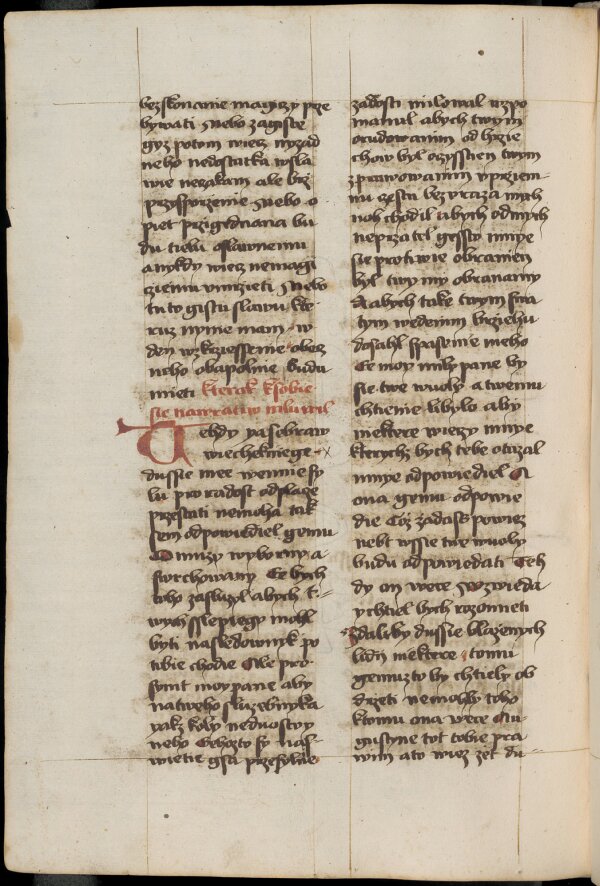 bezskonanie magiczy prze
bywati Snebo zagiste
gyz potom wiecz nyzad
neho nedostatka wsla
wie neczakam ale brz
przysporzenie Snebo o
piet przigednana bu
du tielu oslawnemu
a nykdy wiecz nemagi
cziemu vmrzieti Snebo
tuto gistu slawu kte
ruz nynie mam w
den wzkrziessenie obecz
neho obapolnie budu
mieti kterak ksobie
sie nawratiw mluwil
Tehdy ya sebraw
wiechelniege
dussie mee wemnesy
lu pro radost odplacze
przestati nemoha tak
sem odpowiediel gemu
O muzy wyborny a
swrchowany Ce bych
toho zasluzyl abych t
wych slepiegy mohl
byti nasledownyk po
tobie chodie Ale pro
synt moy pane aby
na tweho sluzebnyka
yakz koly neduostoy
neho Gehozto sy nas
wietie gsa przesylne
zadosti milowal wzpo
manul abych twym
orudowanim od hrzie
chow byl oczysstien twym
zprawowanim vprziem
nu czestu bez vraza mych
noh chodil abych od mych
neprzatel gessto mnye
sie protiwie obranien
byl twymy obranamy
A abych take twym swa
tym wedenim brziehu
dosahl spasenie meho
Ce moy mily pane by
sie twe wuoly a twemu
chtienie libylo aby
niektere wieczy mnye
kterychz bych tebe otazal
mnye odpowiediel A
ona gemu odpowie
die Coz zadass powiez
nebt wssie twe wuoly
budu odpowiedati Teh
dy on wece Sozwieda
y chtiel bych rozomieti
zdaliby dussie blazenych
lidij niektere tomu
gemuzto by chtiely ob
drzeti nemohly toho
ktomu ona wece Au
gustyne tot tobie pra
wim a to wiez zet du